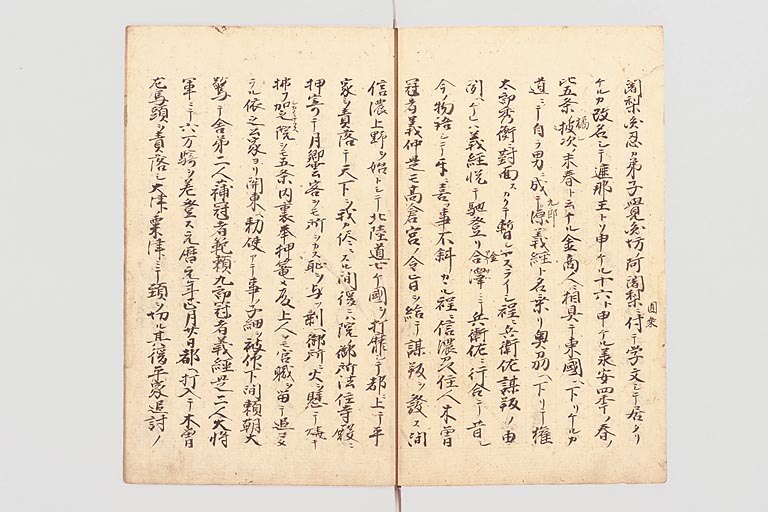 闍梨円忍カ弟子覚円坊阿闍梨ニ付テ学文シテ居タリ
円乗
ケルカ改名シテ遮那王トソ申ケル十六ト申ケル承安四年ノ春ノ
比五条橘次末春ト云ケル金商人ニ相具テ東國ヘ下リケルカ
道ニテ自ラ男ニ成テ九郎源義経ト名乗リ奥刕ヘ下リテ権
太郎秀衡ニ對面スカクテ暫シヤスライシ程ニ兵衛佐謀叛ノ由
聞ヘケレハ義経悦テ馳登リ會澤ニテ兵衛佐ニ行合テ昔シ
今ノ物語シテ手ヲ喜フ事不斜カヽル程ニ信濃ノ住人木曽
冠者義仲是モ高倉宮ノ令旨ヲ給テ謀叛ヲ發ス間
信濃上野ヲ始トシテ北陸道七ケ國ヲ打靡シテ都ヘ上テ平
家ヲ責落テ天下ヲ我カ侭ニスル間後ニハ院ノ御所法住寺殿ニ
押寄テ月卿雲客ヲモ所ヲカス恥ヲ与ヘ剰ヘ御所ニ火ヲ懸テ焼キ
拂ヒ加之院ヲモ五条内裏奉押篭度々上人之官職ヲ留テ追
タル依之公家ヨリ関東ヘ勅使アテ事ノ子細ヲ被仰下間頼朝大
驚テ舎弟二人蒲冠者範頼九郎冠者義経是二人大将
軍ニテ六万騎ヲ差登ス元暦元年正月廿日都ヘ打入テ木曽
左馬頭ヲ責落シ大津ノ粟津ニテ頸ヲ切ル其後平家追討ノ